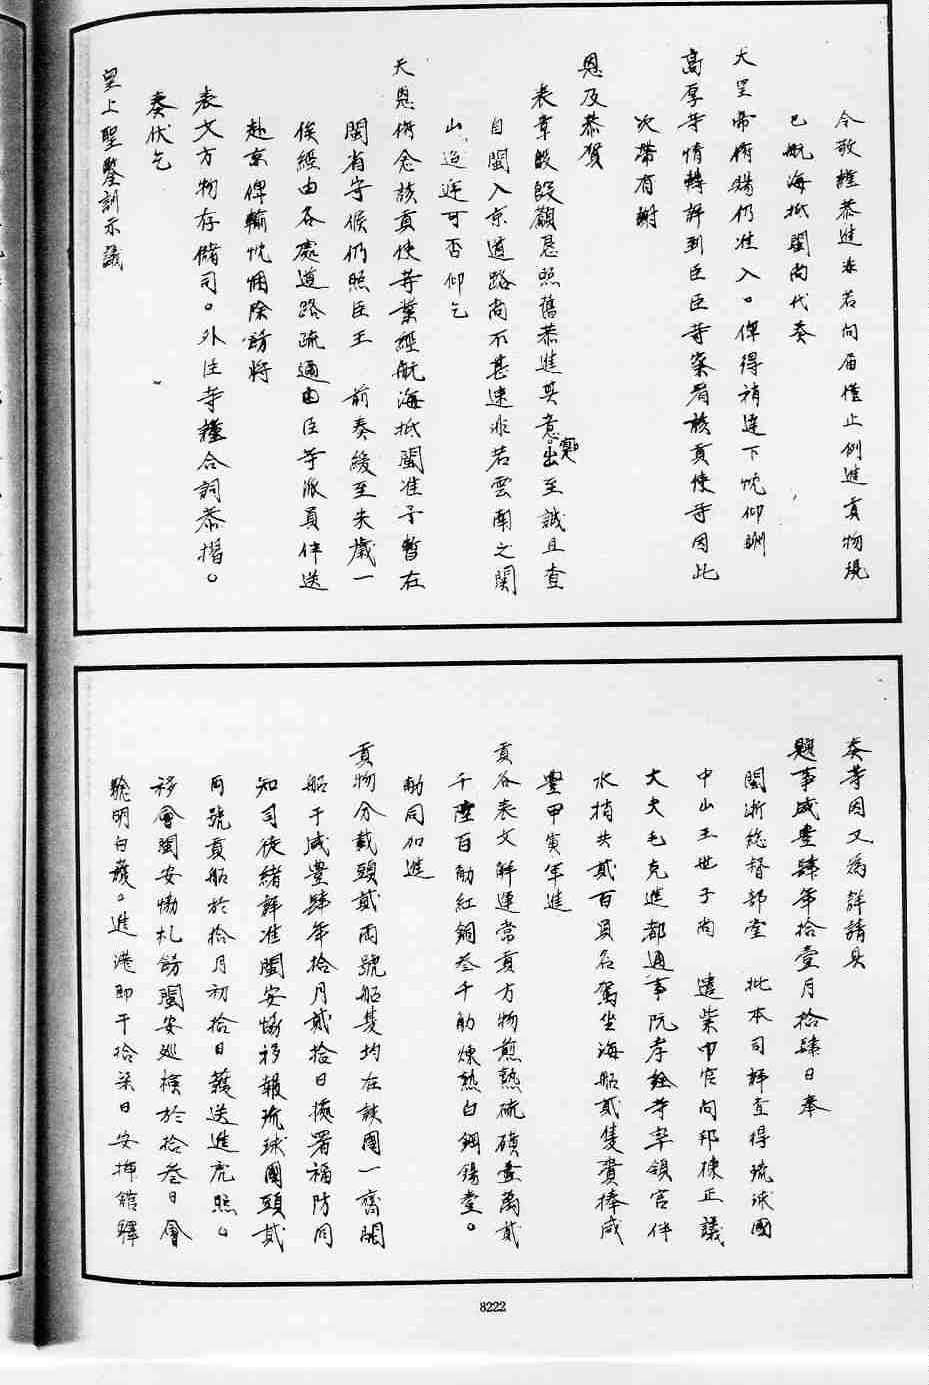 今敬謹恭進末若向届僅止例進貢物現
已航海抵閩尚代奏
大皇帝賞賜仍准入。俾得稍達下忱仰酬
高厚等情轉詳到臣臣等察看該貢使等因此
次帶有謝
恩及恭賀
表章殷殷籲懇照舊恭進其意出寔至誠且查
自閩入京道路尚不甚速非若雲南之関
山迢遥可否仰乞
天恩俯念該貢使等業經航海抵閩准予暫在
閩省守候仍照臣王 前奏緩至來歲一
俟經由各處道路疏通由臣等派員伴送
赴京俾輸忱悃除飭將
表文方物存儲司。外住等謹合詞恭摺。
奏伏乞
皇上聖鑒訓示議
奏等因又為詳請具
題事咸豊肆年拾壹月拾肆日奉
閩浙総督部堂 批本司詳查得琉球國
中山王世子尚 遣紫巾官向邦棟正議
大夫毛克進都通事阮孝銓等率領官伴
水梢共貳百員名駕坐海船貳隻賫捧咸
豊甲寅年進
貢各表文解運常貢方物煎熟硫磺壹萬貳
千陸百觔紅銅叁千觔煉熟白鋼錫壹。
觔同加進
貢物分載頭貳両號船隻均在該國一齊開
船于咸豊肆年拾月貳拾日據署福防同
知司徒緒詳准閩安協移報琉球國頭貳
両號貢船於拾月初拾日護送進虎照。
移會閩安協札飭閩安巡檢於拾叁日會
驗明白護。進港即于拾柒日安揷館驛
8222